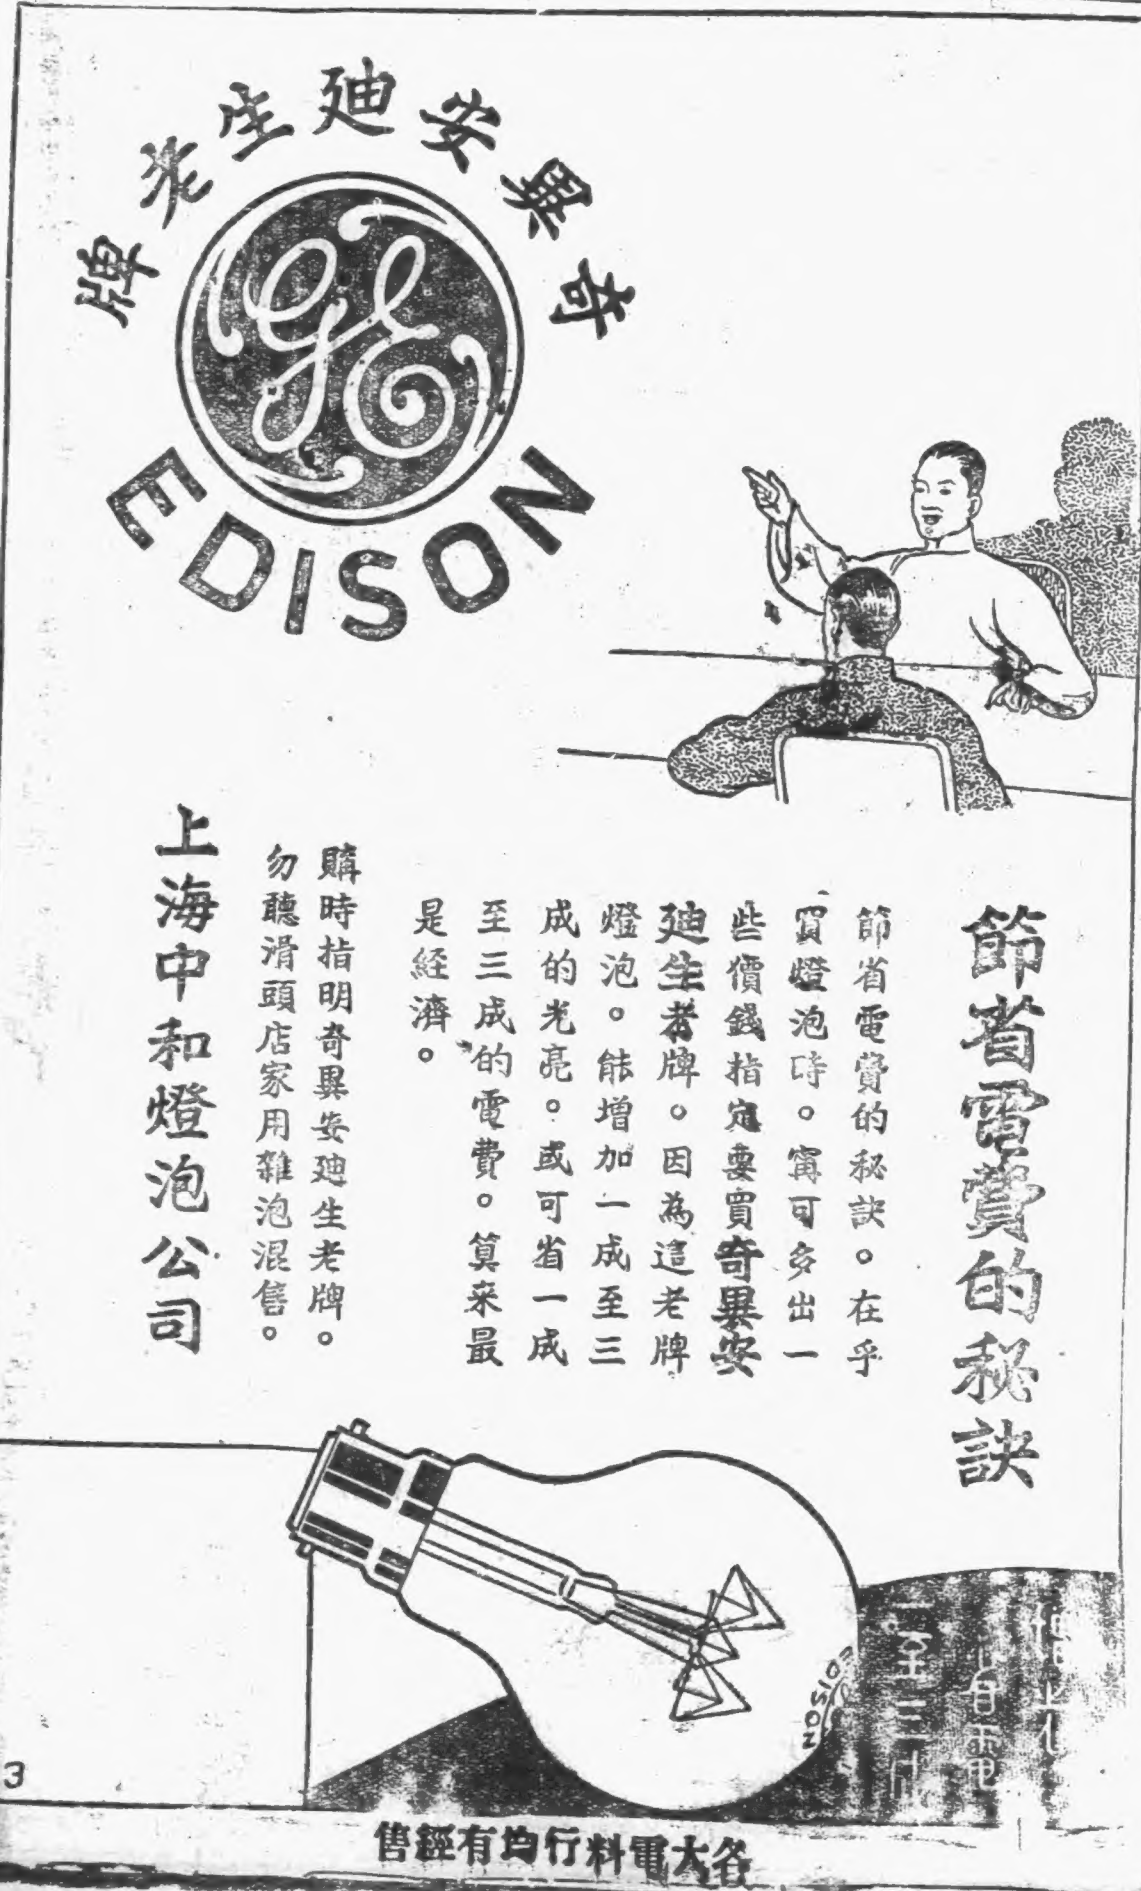 奇異安廸生老牌
GE
EDISON
節省電費的秘訣
節省電費的秘訣。在乎
買燈泡時。寗可多出一
些價錢指定要買奇異安
廸生老牌。因為這老牌
燈泡。能增加一成至三
成的光亮。或可省一成
至三成的電費。算來最
是経濟。
購時指明奇異安廸生老牌。
勿聽滑頭店家用雜泡混售。
上海中和燈泡公司
EDISON
增光
省電
一至三成
各大電料行均有經售
3